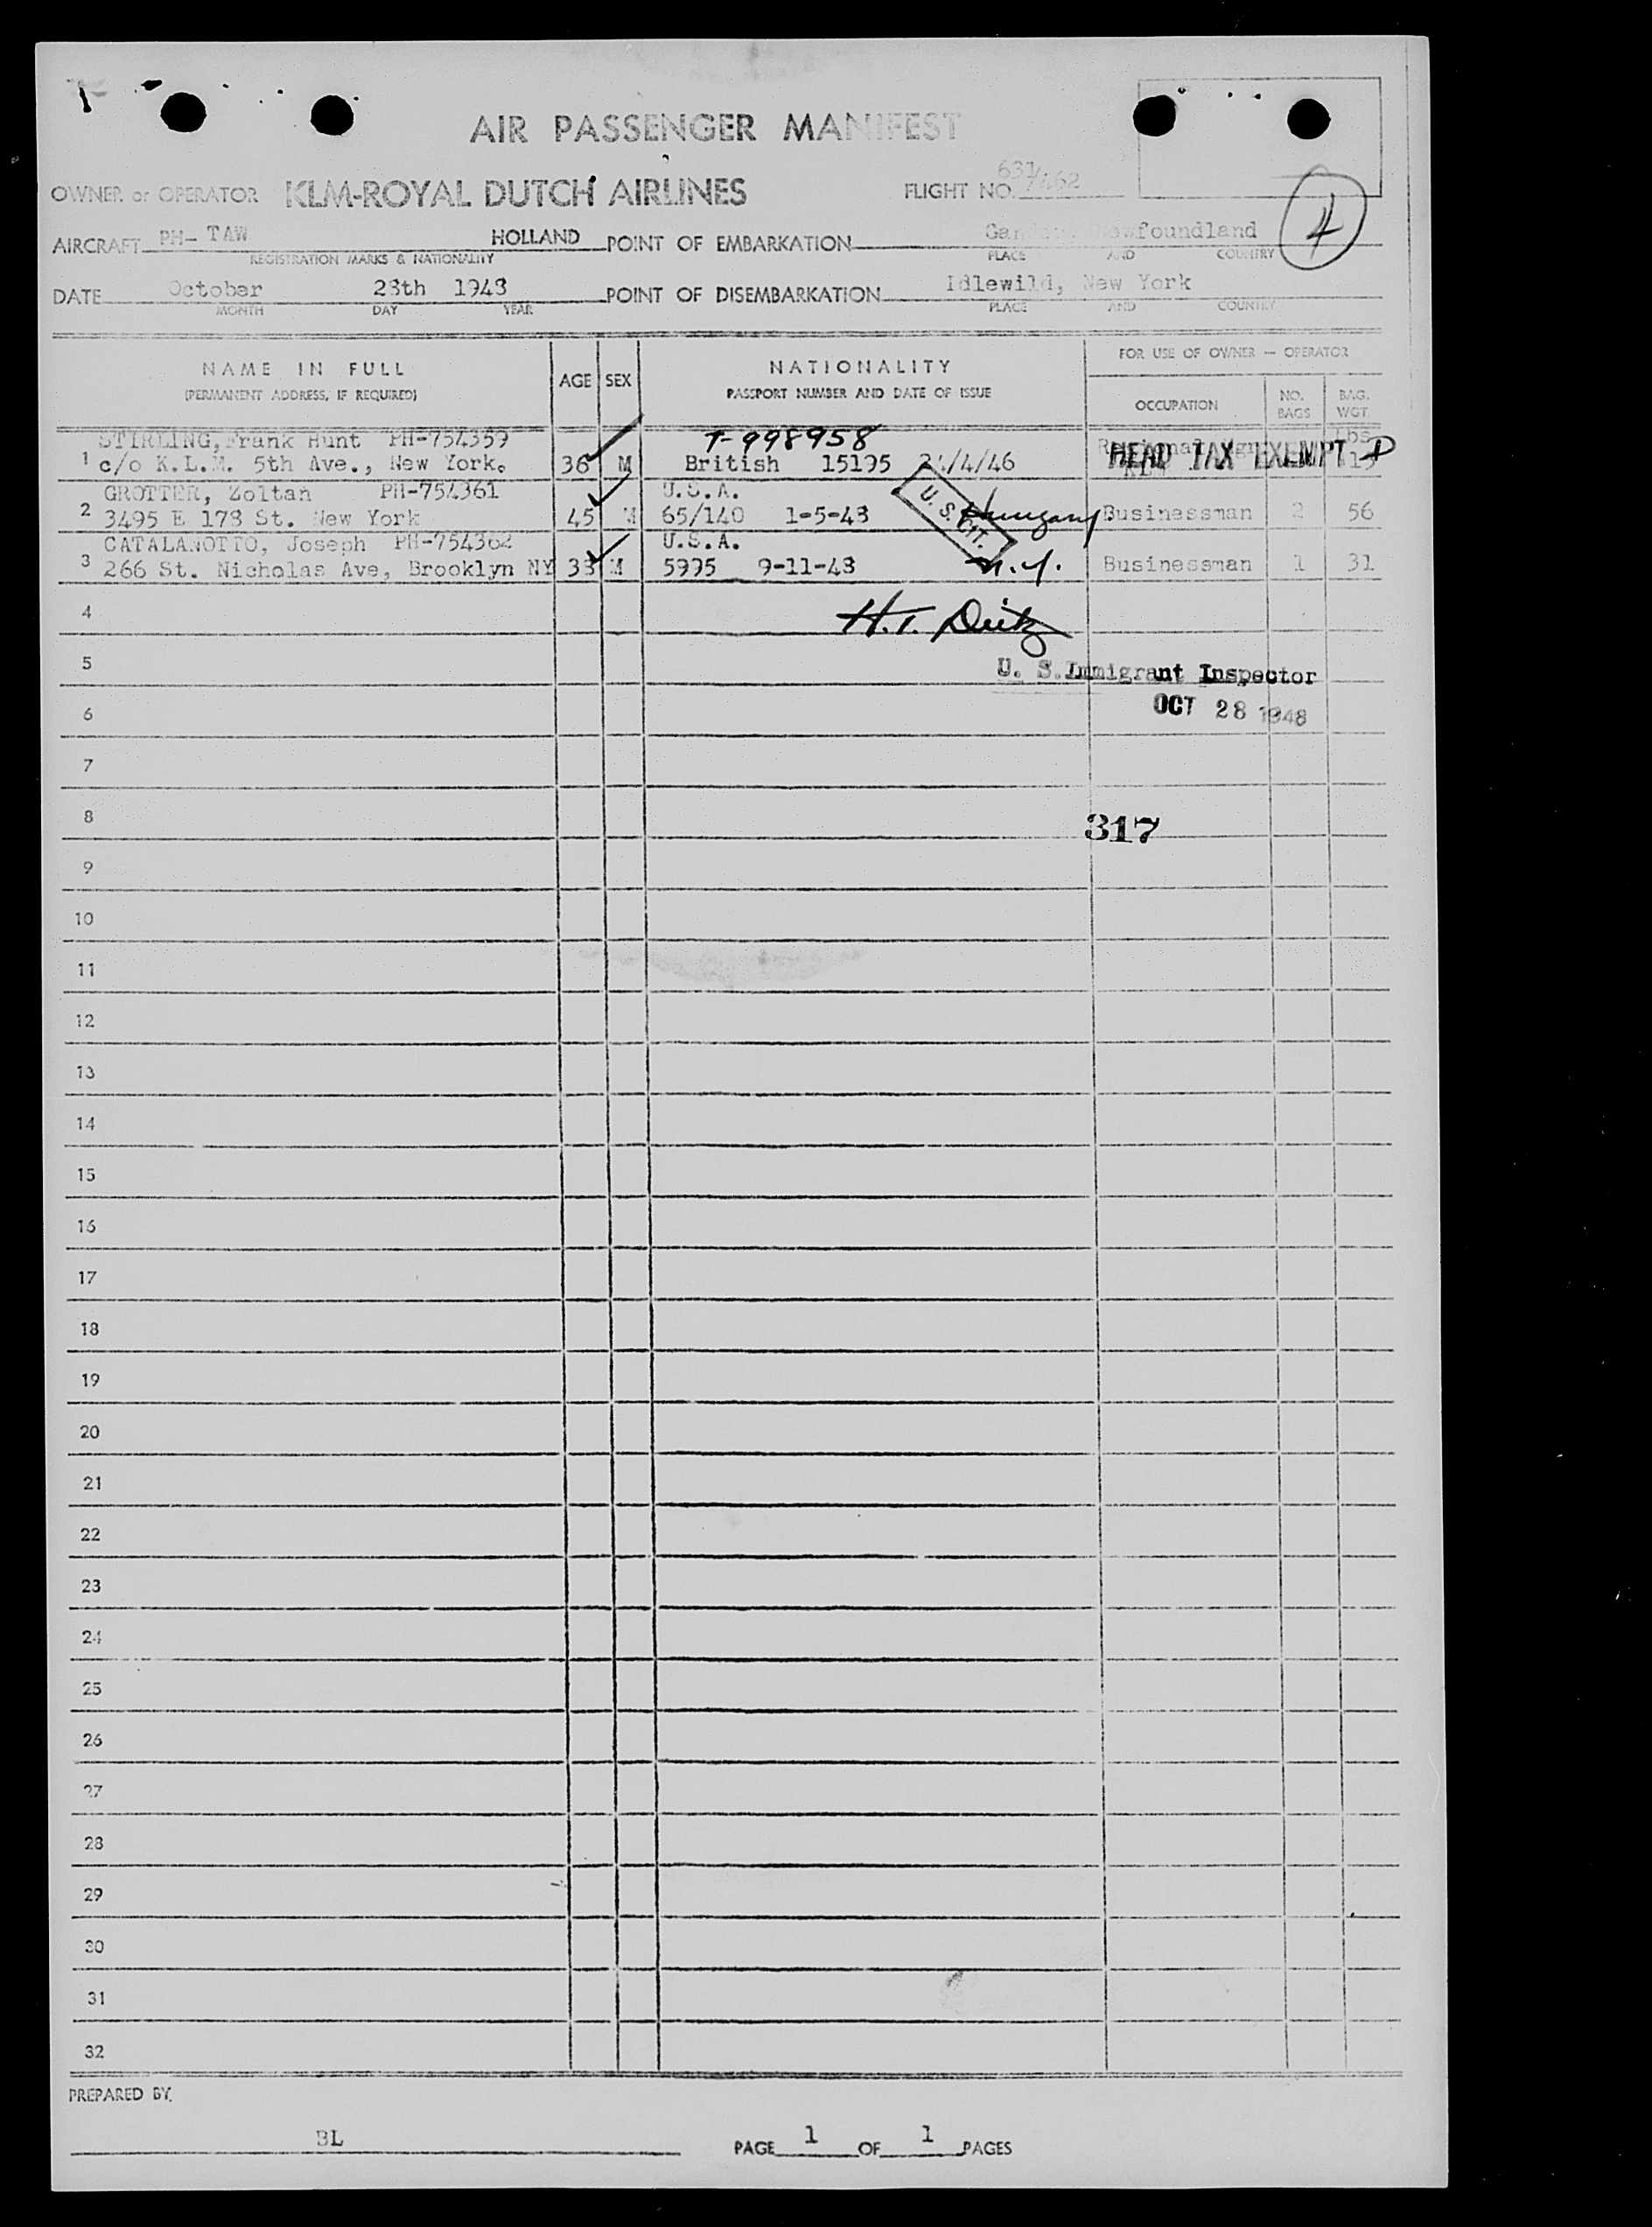 AIR PASSENGER MANIFEST
OWNER or OPERATOR KLM-ROYAL DUTCH AIRLINES FLIGHT NO. 631/462
4
AIRCRAFT PH-TAW HOLLAND POINT OF EMBARKATION Newfoundland
REGISTRATION MARKS & NATIONALITY PLACE AND COUNTRY
DATE October 28th 1948 POINT OF DISEMBARKATION Idlewild, New York
MONTH DAY YEAR PLACE AND COUNTRY
NAME IN FULL
(PERMANENT ADDRESS, IF REQUIRED)
AGE SEX
NATIONALITY
PASSPORT NUMBER AND DATE OF ISSUE
FOR USE OF OWNER — OPERATOR
OCCUPATION NO. BAGS BAG. WGT.
STIRLING, Frank Hunt PH-754359 T-998958 Lbs
1 c/o K.L.M. 5th Ave., New York. 36 M British 15195 /4/46 HEAD TAX EXEMPT
GROTTER, Zoltan PH-754361 U.S.A.
2 3495 E 178 St. New York 45 M 65/140 1-5-48 U. S. CIT. Hungary Businessman 2 56
CATALANOTTO, Joseph PH-754362 U.S.A.
3 266 St. Nicholas Ave, Brooklyn NY 38 M 5995 9-11-48 N.Y. Businessman 1 31
4 H.T. Deitz
5 U. S. Immigrant Inspector
6 OCT 28 1948
7
8 317
9
10
11
12
13
14
15
16
17
18
19
20
21
22
23
24
25
26
27
28
29
30
31
32
PREPARED BY
BL
PAGE 1 OF 1 PAGES